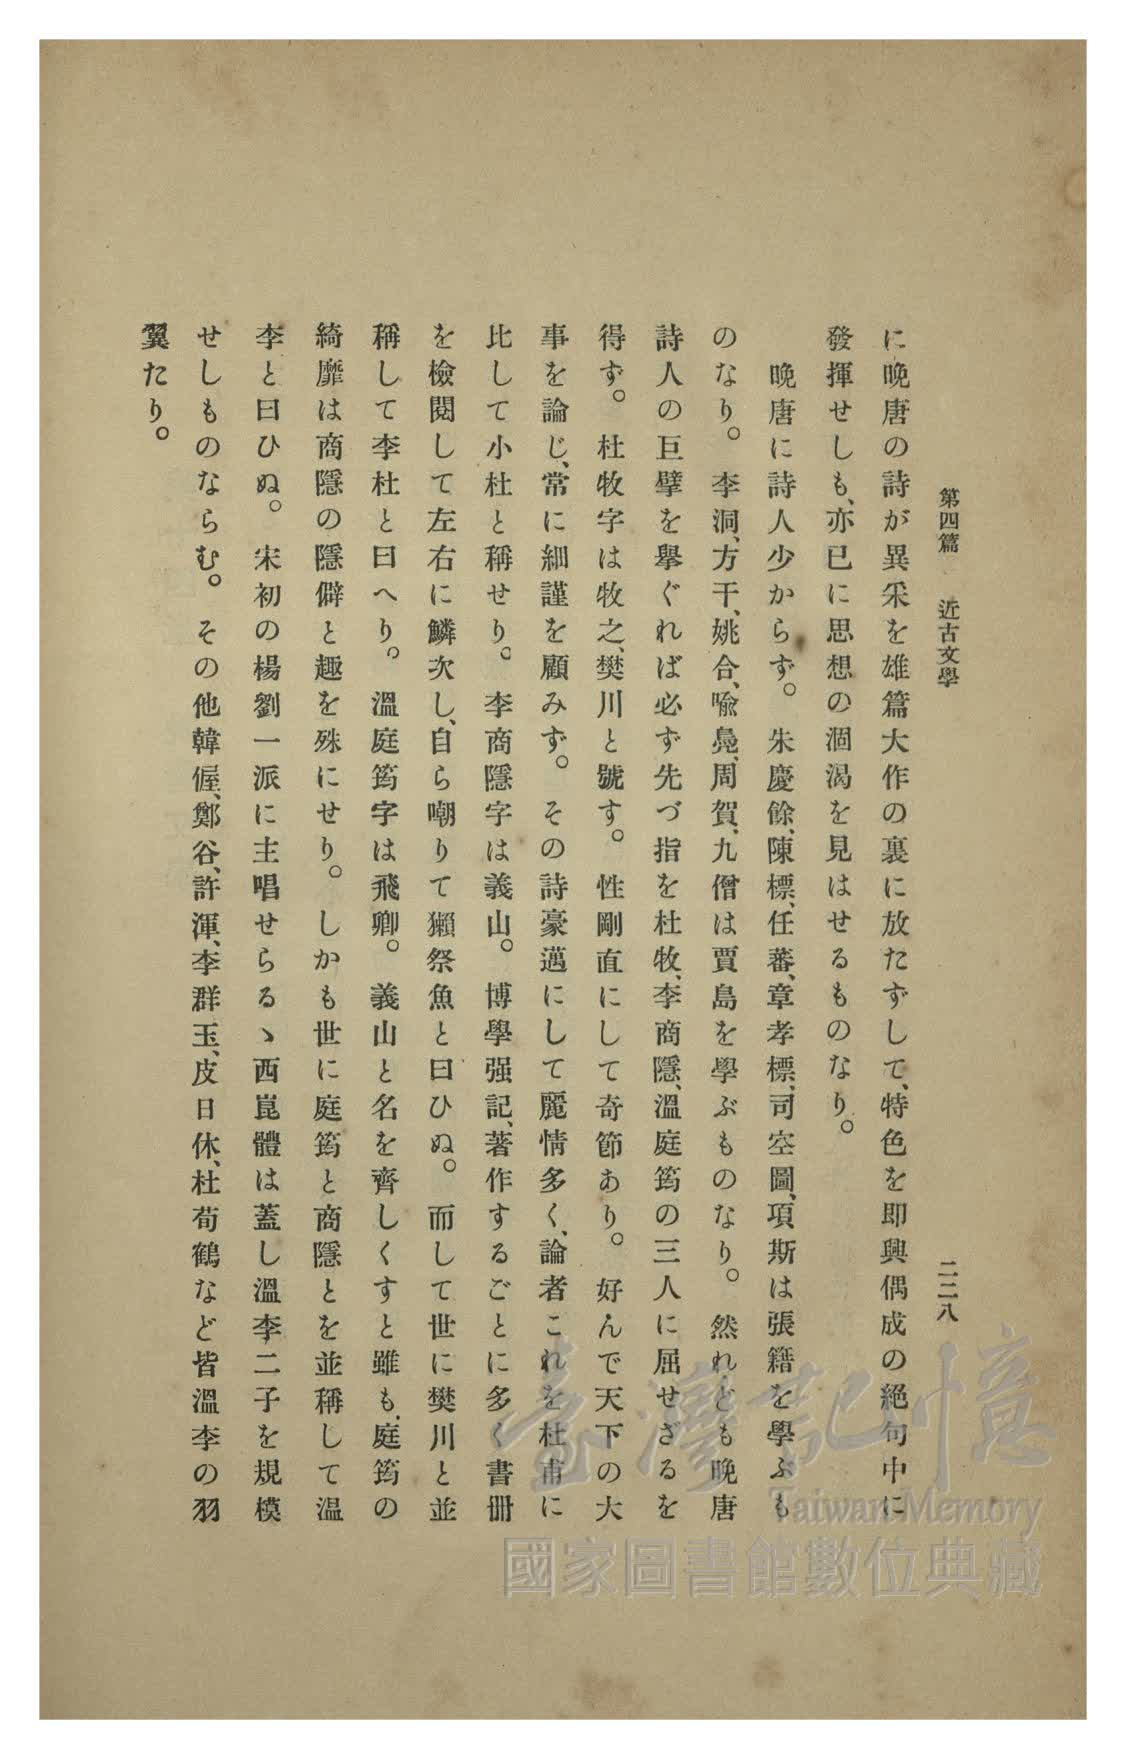 第四篇　近古文學
二二八
に晚唐の詩が異采を雄篇大作の裏に放たずして、特色を即興偶成の絕句中に
發揮せしも、亦已に思想の涸渴を見はせるものなり。
晚唐に詩人少からず。朱慶餘、陳標、任蕃、章孝標、司空圖、項斯は張籍を學ぶも
のなり。李洞、方干、姚合、喩鳧、周賀、九僧は賈島を學ぶものなり。然れども晚唐
詩人の巨擘を擧ぐれば必ず先づ指を杜牧、李商隱、溫庭筠の三人に屈せざるを
得ず。杜牧字は牧之、樊川と號す。性剛直にして奇節あり。好んで天下の大
事を論じ、常に細謹を顧みず。その詩豪邁にして麗情多く、論者これを杜甫に
比して小杜と稱せり。李商隱字は義山。博學强記、著作するごとに多く書册
を檢閱して左右に鱗次し、自ら嘲りて獺祭魚と曰ひぬ。而して世に樊川と並
稱して李杜と曰へり。溫庭筠字は飛卿。義山と名を齊しくすと雖も、庭筠の
綺靡は商隱の隱僻と趣を殊にせり。しかも世に庭筠と商隱とを並稱して溫
李と曰ひぬ。宋初の楊劉一派に主唱せらるゝ西崑體は蓋し溫李二子を規模
せしものならむ。その他韓偓、鄭谷、許渾、李群玉、皮日休、杜荀鶴など皆溫李の羽
翼たり。
臺灣記憶
Taiwan Memory
國家圖書館數位典藏